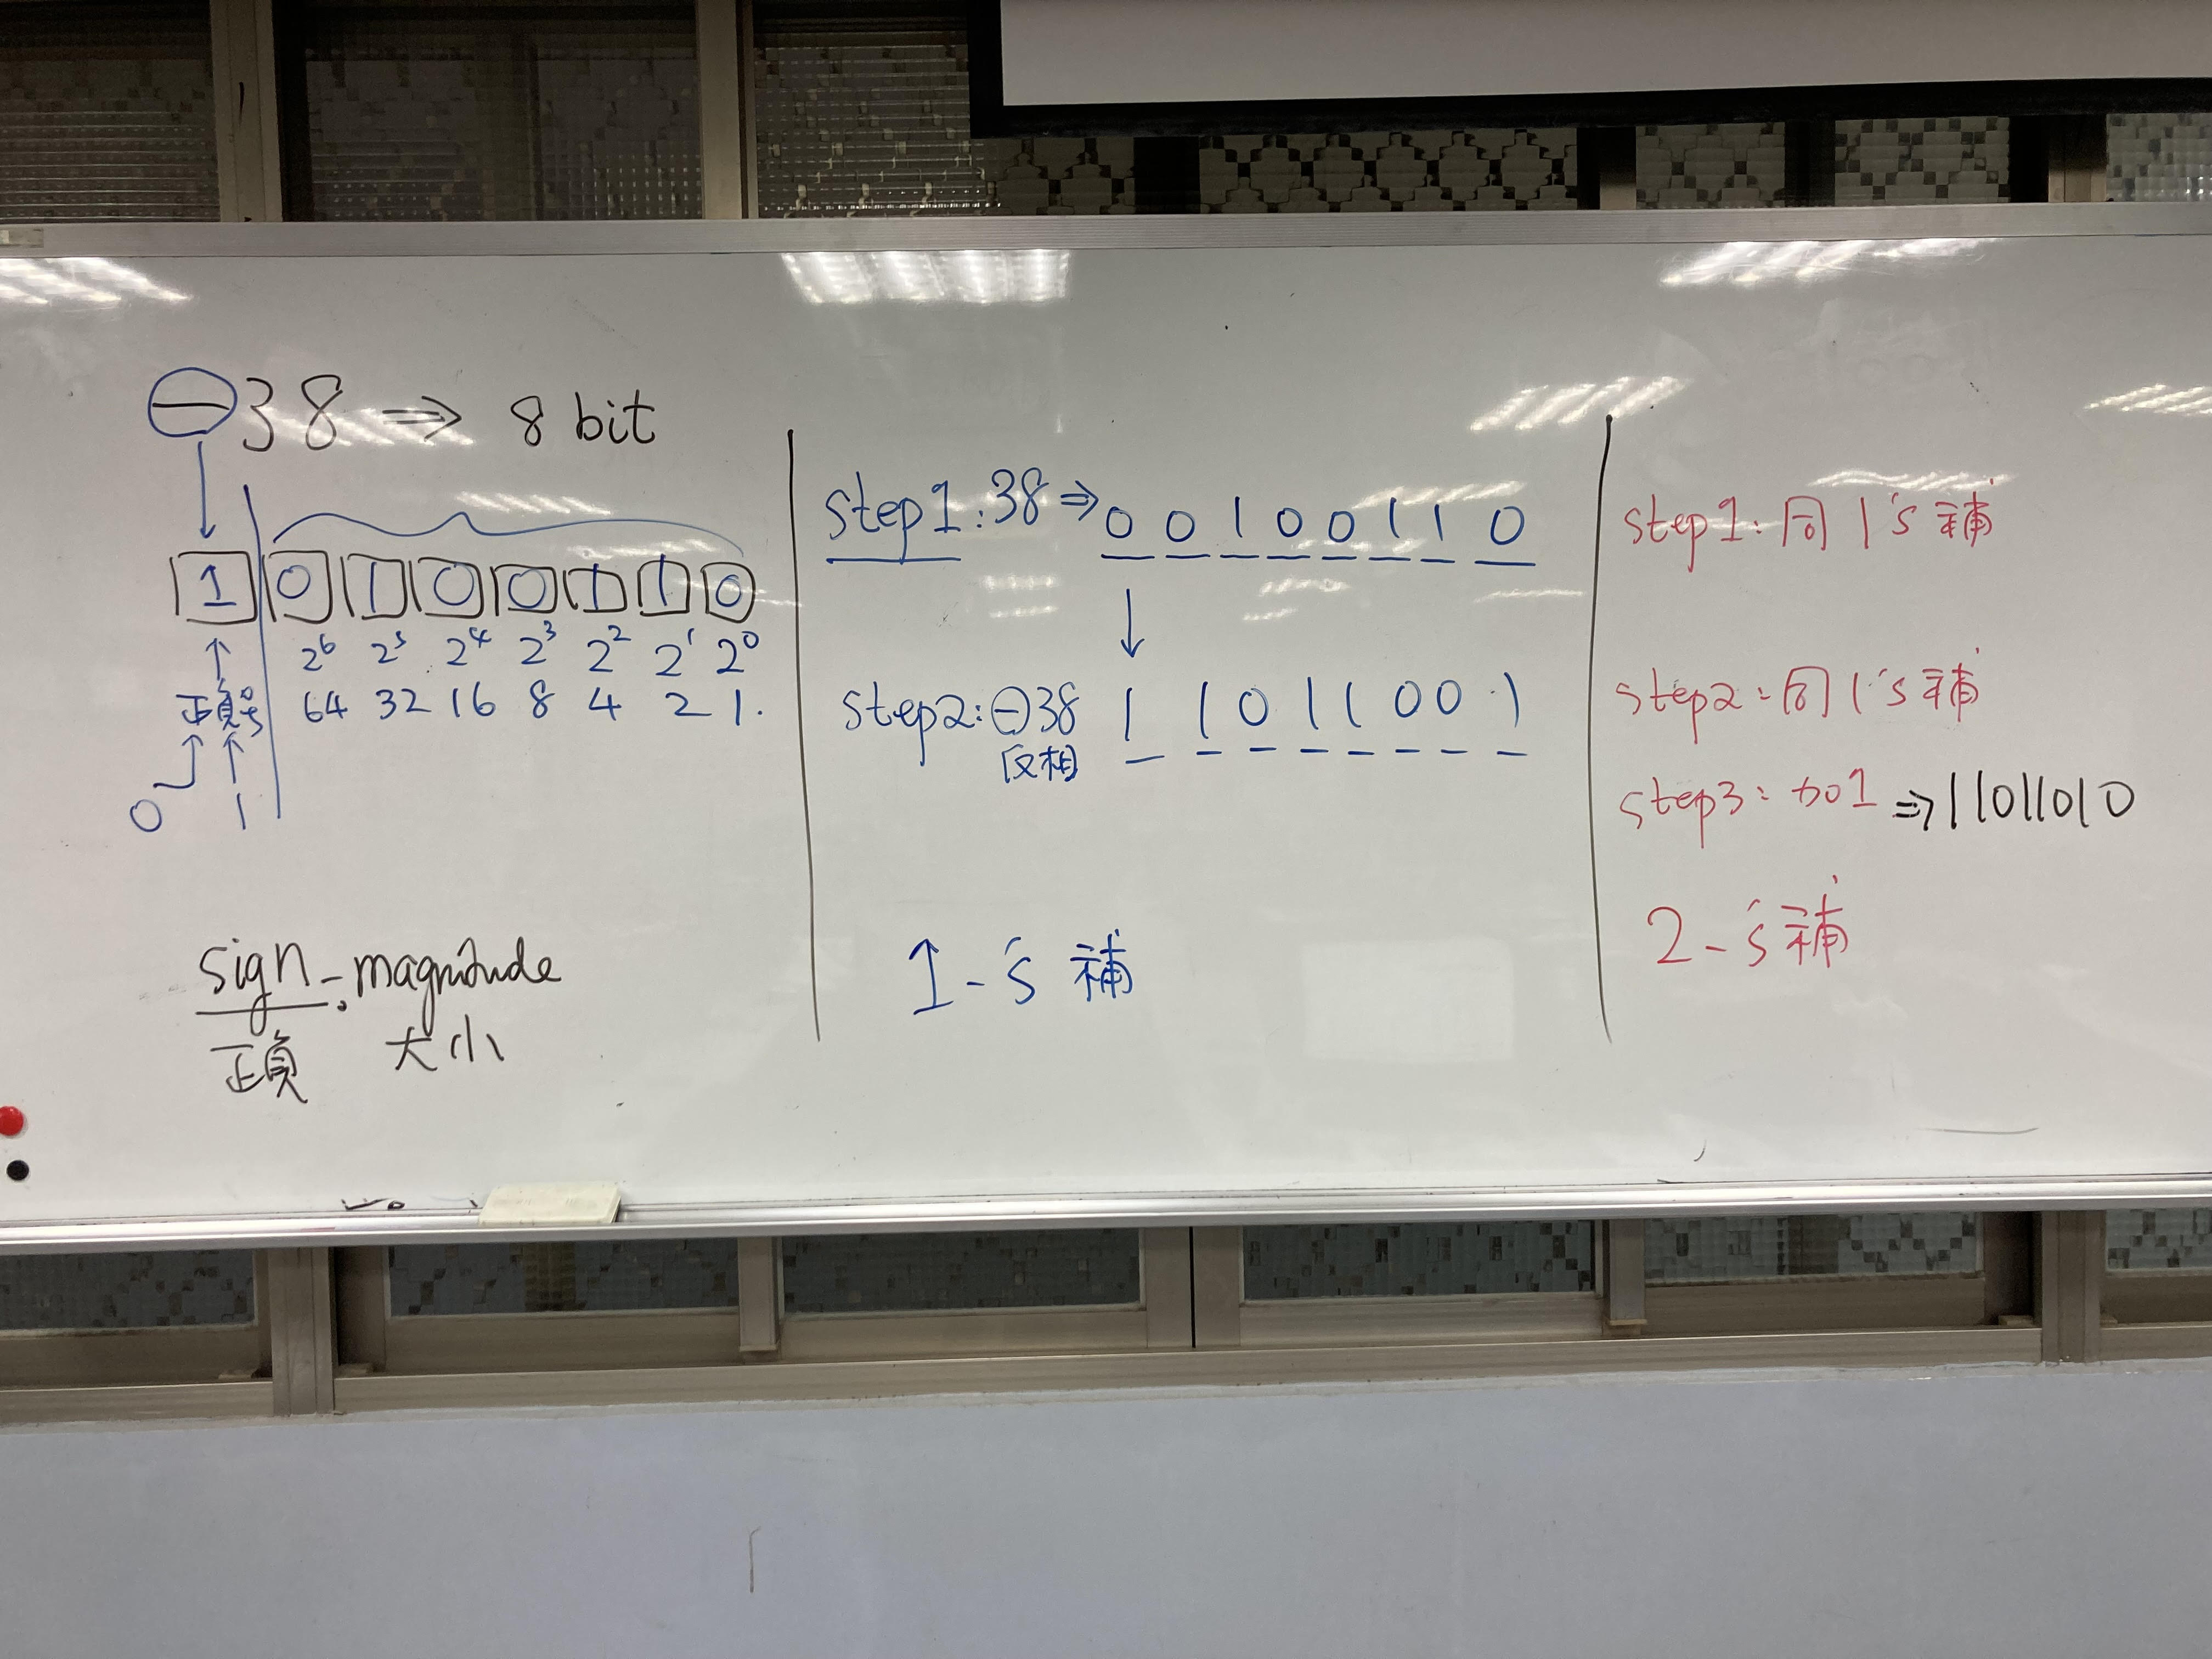 ⊖38 ⇒ 8 bit
1 0 1 0 0 1 1 0
2⁶ 2⁵ 2⁴ 2³ 2² 2¹ 2⁰
正負号 64 32 16 8 4 2 1.
0 1
sign-magnitude
正負 大小
step1:38⇒ 0 0 1 0 0 1 1 0
step2:⊖38 1 1 0 1 1 0 0 1
反相
1-'s 補
step1:同1's補
step2:同1's補
step3:加1 ⇒11011010
2-'s補